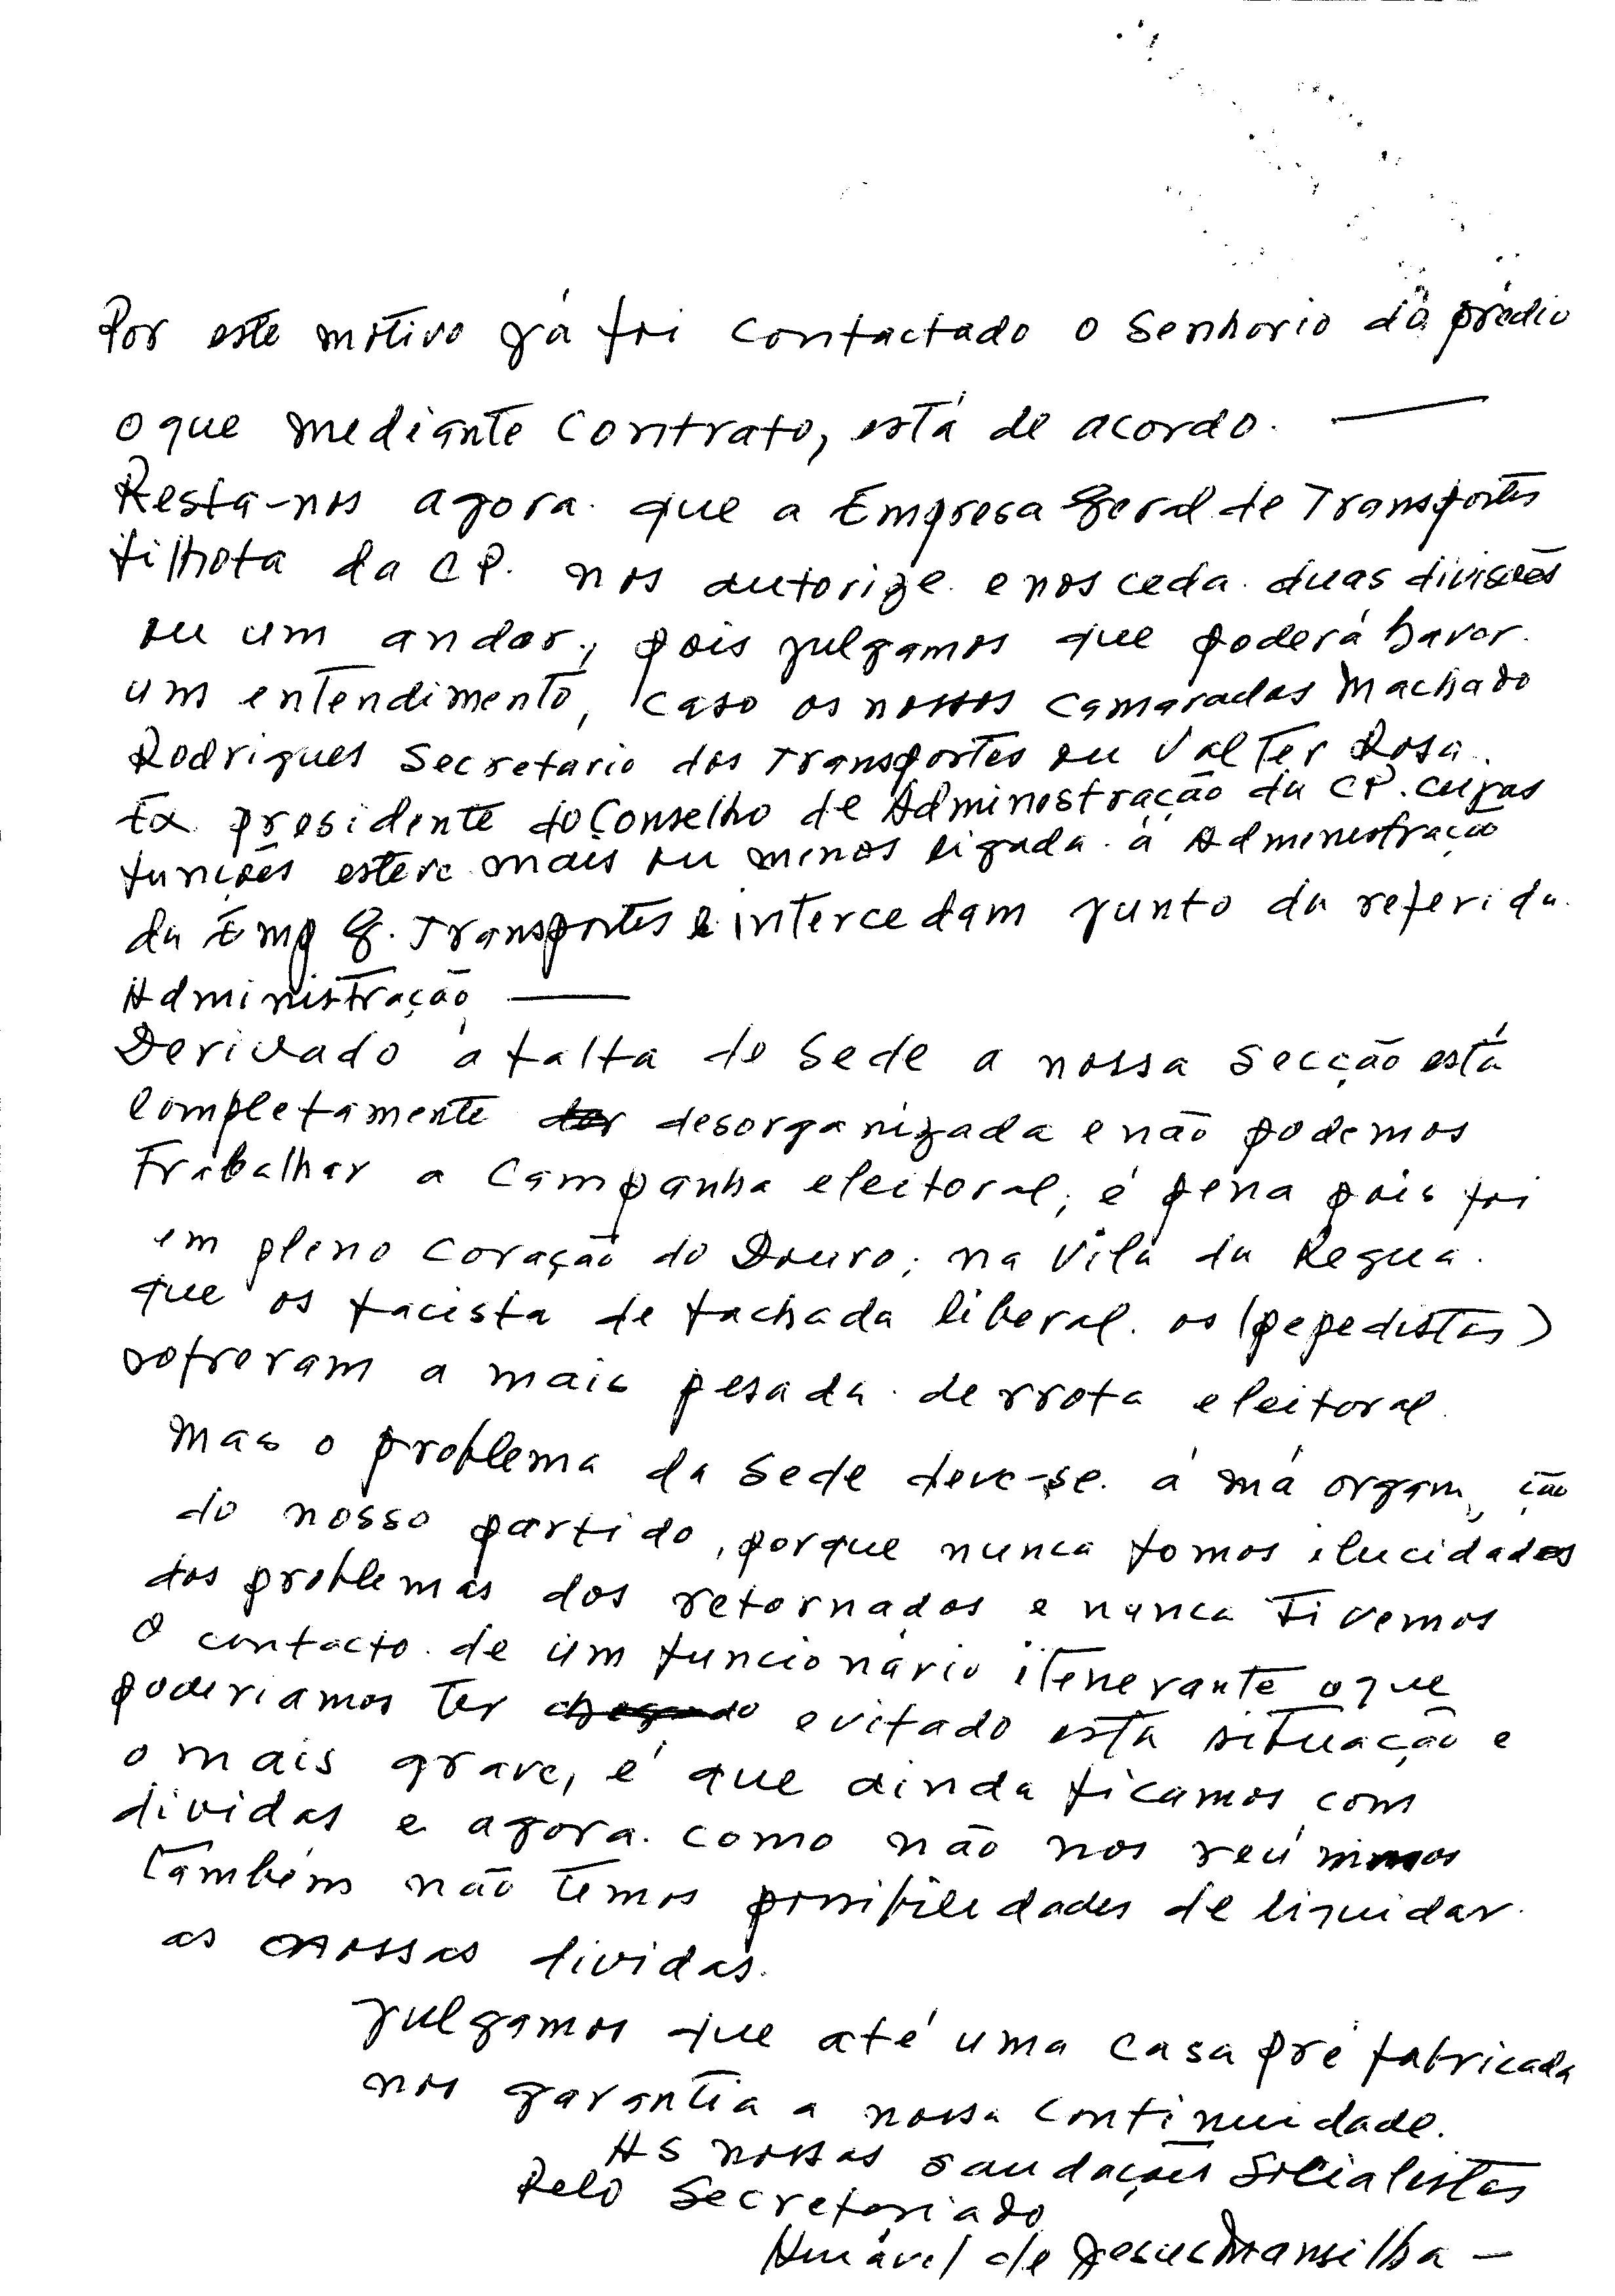 Por este motivo já foi contactado o Senhorio do prédio
o que mediante Contrato, está de acordo. —
Resta-nos agora. que a Empresa Geral de Transportes
filhota da CP. nos autorize e nos ceda. duas divisões
ou um andar, pois julgamos que poderá havor.
um entendimento, caso os nossos camaradas Machado
Rodrigues Secretario dos Transportes ou Valter Rosa.
Ex presidente do Conselho de Administração da CP. cujas
funções esteve mais ou menos ligada. á Administração
da Emp G. Transportes e intercedam junto da referida.
Administração —
Derivado á falta de Sede a nossa Secção está
completamente desorganizada e não podemos
Trabalhar a Campanha eleitoral, é pena pois foi
em pleno coração do Douro, na Vila da Regua.
que os facista de fachada liberal. os (pepedistas)
sofreram a mais pesada. derrota eleitoral.
Mas o problema da Sede deve-se. á má ção
do nosso partido, porque nunca fomos ilucidados
dos problemas dos retornados e nunca tivemos
O contacto. de um funcionário itenerante o que
poderiamos ter evitado esta situação e
o mais grave, é que ainda ficamos com
dividas e agora. como não nos reúnimos
também não temos possibilidades de liquidar.
as nossas dividas.
Julgamos que até uma casa pré fabricada
nos garantia a nossa continuidade.
As nossas saudações Socialistas
Pelo Secretariado
de Jesus Mansilha —